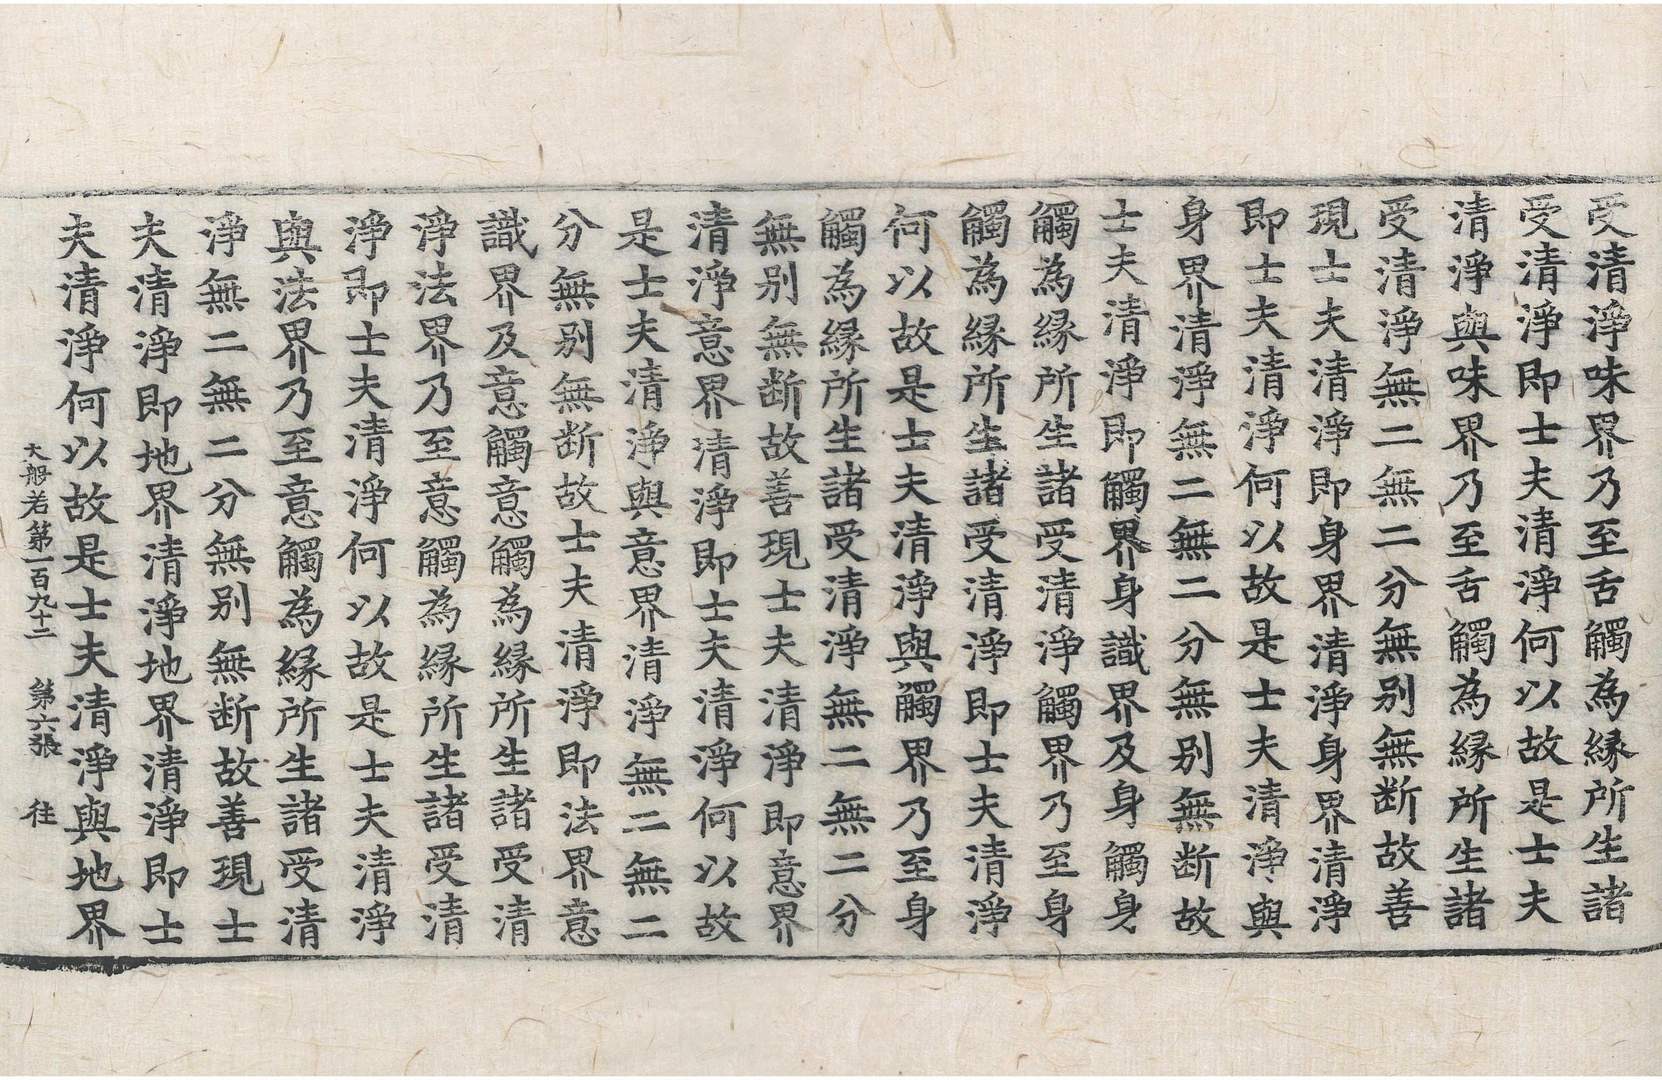 受清淨味界乃至舌觸為縁所生諸
受清淨即士夫清淨何以故是士夫
清淨與味界乃至舌觸為縁所生諸
受清淨無二無二分無别無断故善
現士夫清淨即身界清淨身界清淨
即士夫清淨何以故是士夫清淨與
身界清淨無二無二分無别無断故
士夫清淨即觸界身識界及身觸身
觸為縁所生諸受清淨觸界乃至身
觸為縁所生諸受清淨即士夫清淨
何以故是士夫清淨與觸界乃至身
觸為縁所生諸受清淨無二無二分
無别無断故善現士夫清淨即意界
清淨意界清淨即士夫清淨何以故
是士夫清淨與意界清淨無二無二
分無别無断故士夫清淨即法界意
識界及意觸意觸為縁所生諸受清
淨法界乃至意觸為縁所生諸受清
淨即士夫清淨何以故是士夫清淨
與法界乃至意觸為縁所生諸受清
淨無二無二分無别無断故善現士
夫清淨即地界清淨地界清淨即士
夫清淨何以故是士夫清淨與地界
大般若第一百九十二 第六張 往